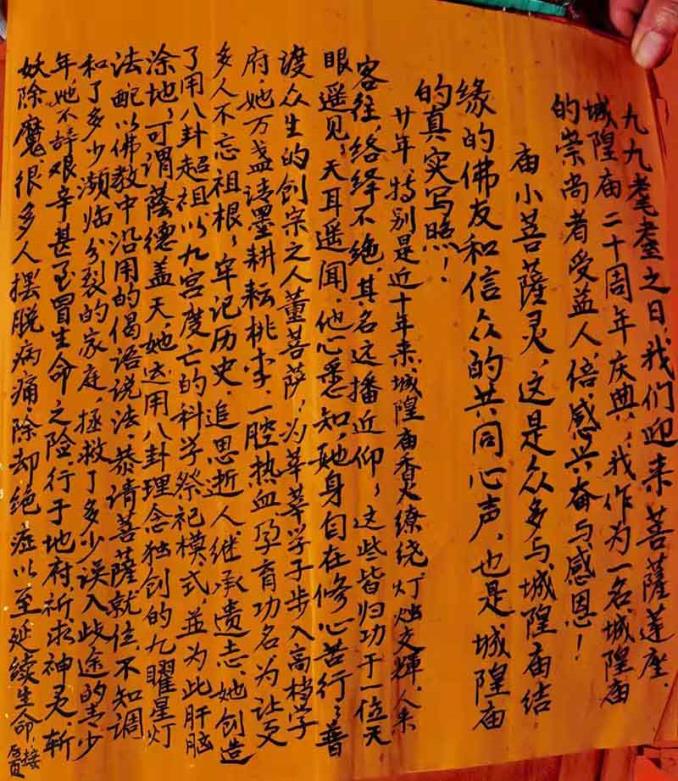 九九老耄之日,我们迎来菩萨莲座.
城隍庙二十周年庆典,我作为一名城隍庙
的崇尚者受益人倍感兴奋与感恩!
庙小菩萨灵,这是众多与城隍庙结
缘的佛友和信众的共同心声,也是城隍庙
的真实写照!
廿年,特别是近十年来,城隍庙香火缭绕,灯烛交輝,人来
客往,络绎不绝,其名远播近仰,这些皆归功于一位天
眼遥见,天耳遥闻,他心悉知,她身自在修心苦行,普
渡众生的创宗之人董菩萨,为莘莘学子步入高档学
府,她万盏漆墨耕耘桃李,一腔热血孕育功名为让更
多人不忘祖根,牢记历史,追思逝人继承遗志,她创造
了用八卦超祖以九宫度亡的科学祭祀模式,並为此肝脑
涂地,可谓蔭德盖天,她运用八卦理念独创的九曜星灯
法配以佛教中沿用的偈语说法,恭请菩萨就位,不知调
和了多少濒临分裂的家庭,拯救了多少误入歧途的青少
年,她不辞艰辛甚至冒生命之险行于地府祈求神灵斩
妖除魔,很多人摆脱病痛,除却绝症以至延续生命,接后页